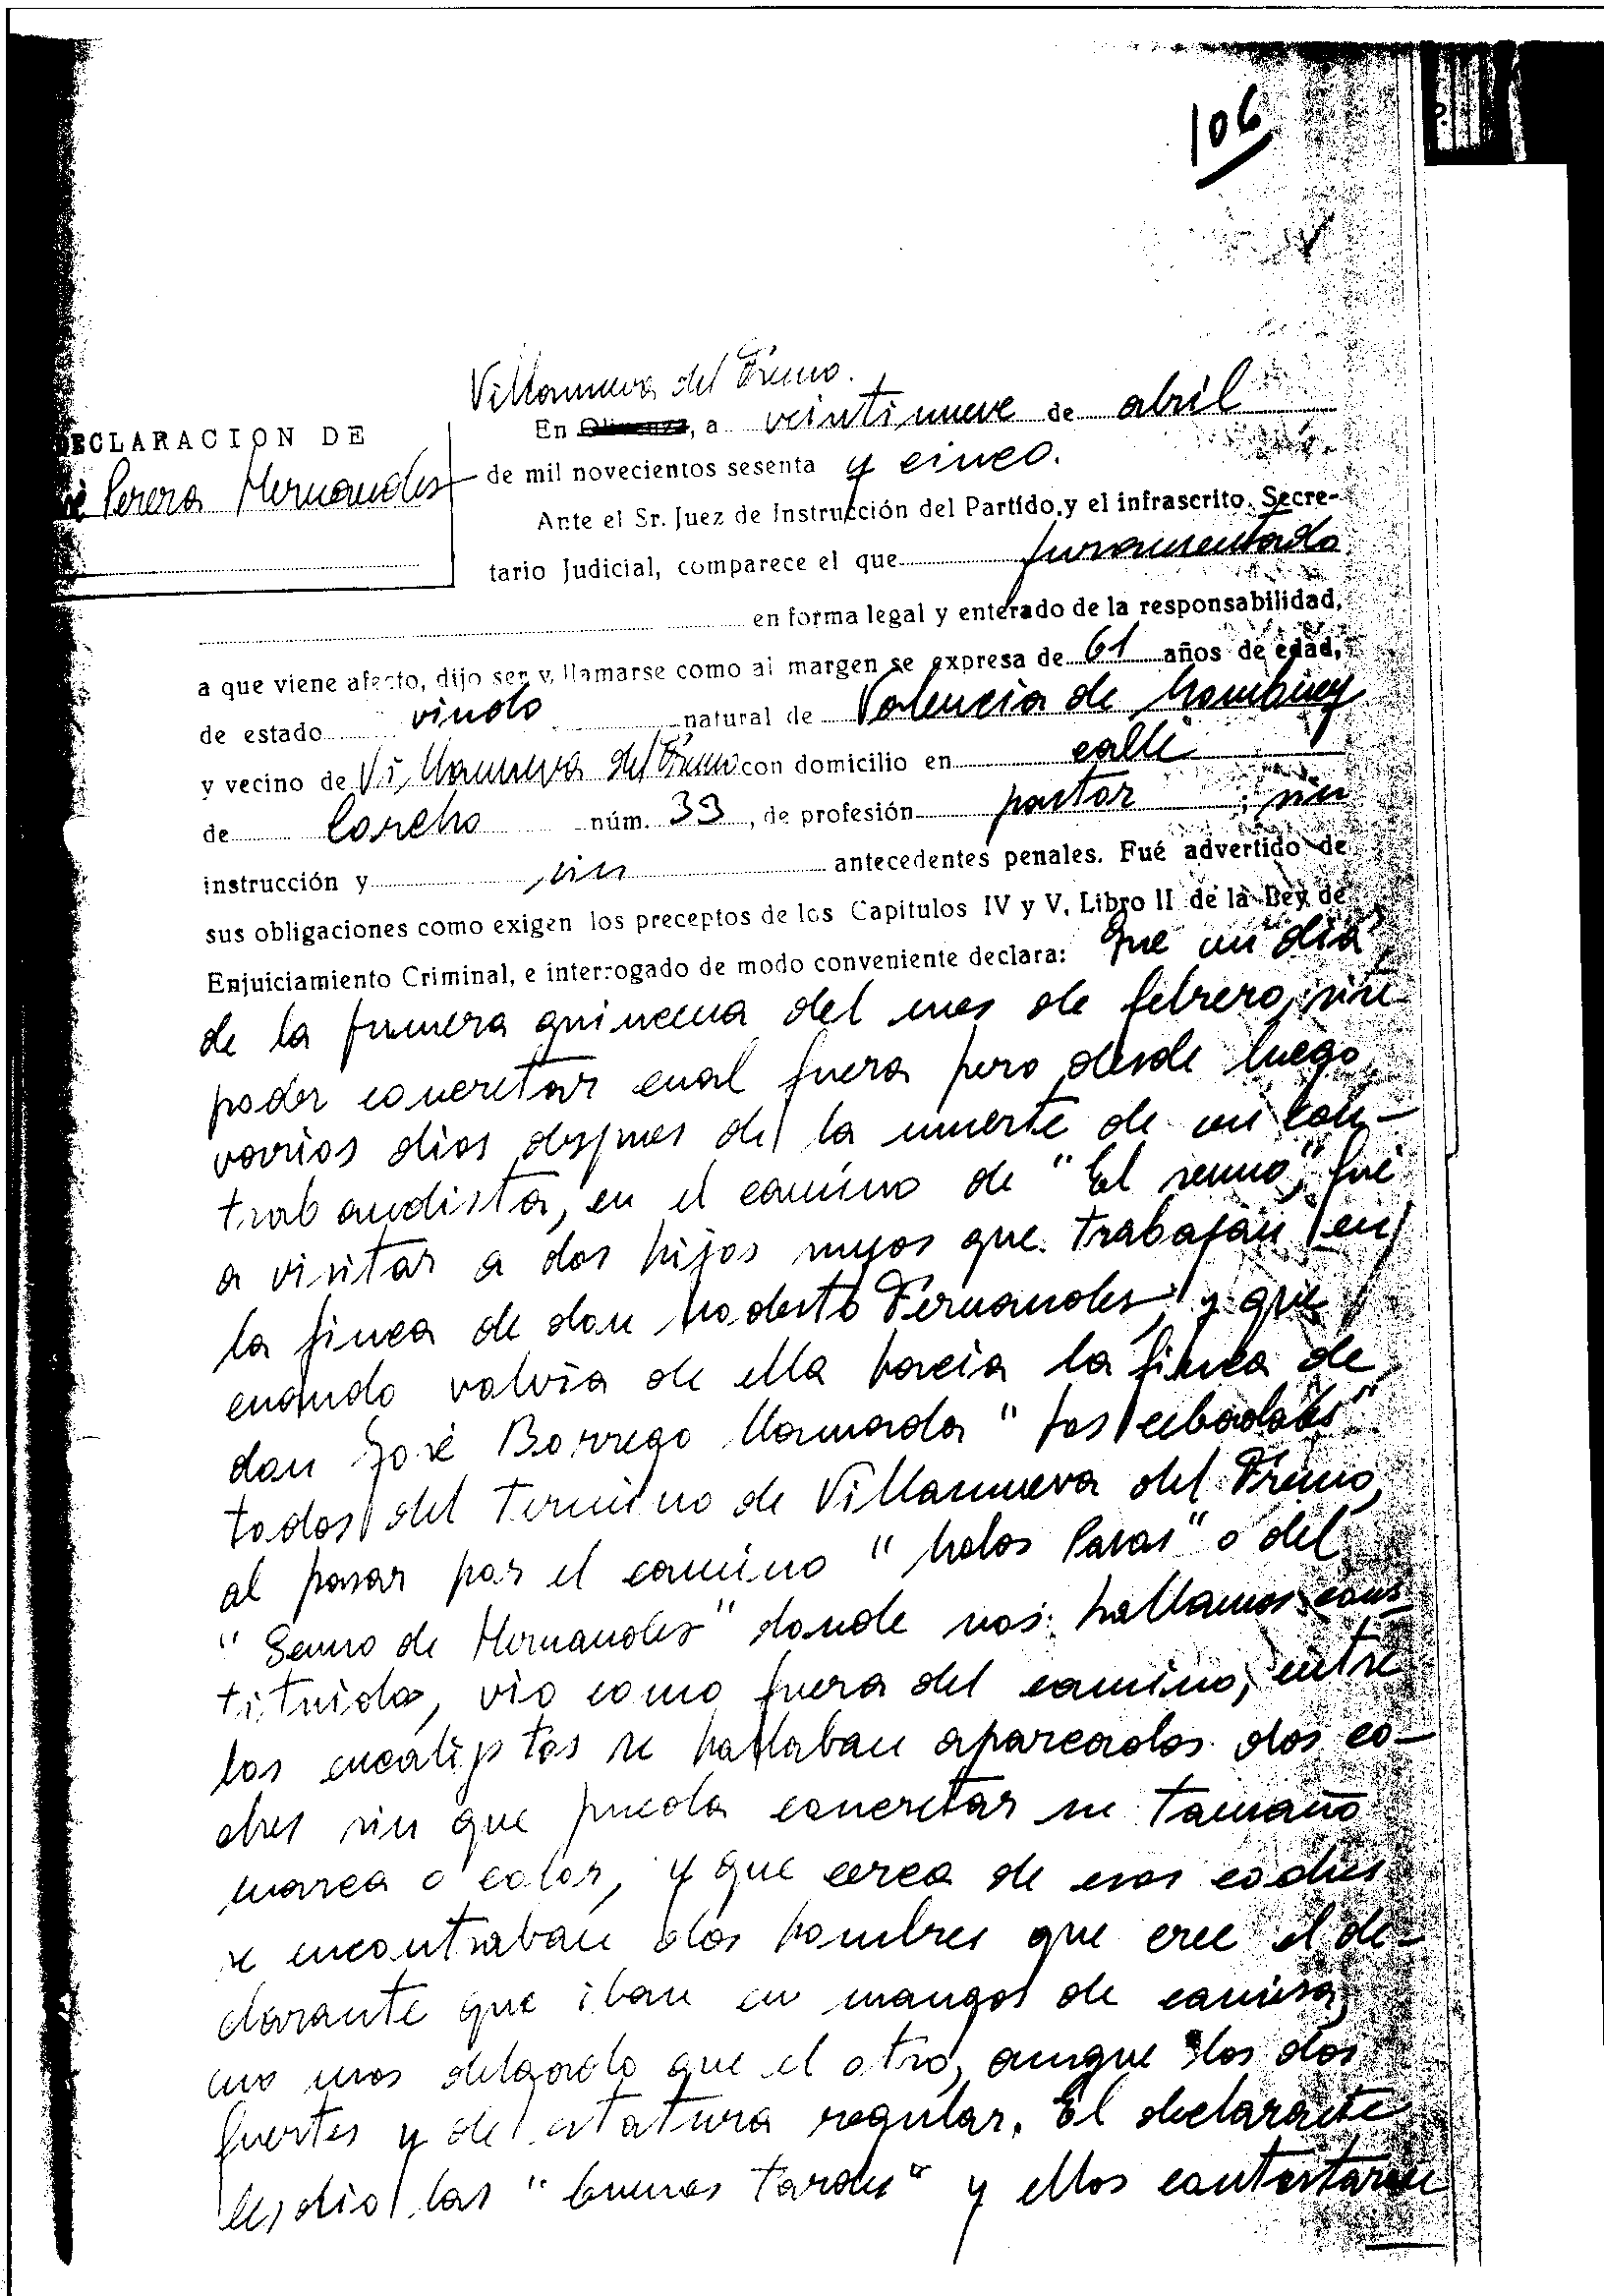 106
Villanueva del Fresno.
DECLARACION DE
Perera Hernandes
En Olivenza, a veintinueve de abril
de mil novecientos sesenta y cinco.
Ante el Sr. Juez de Instrucción del Partido, y el infrascrito Secre-
tario Judicial, comparece el que juramentado
en forma legal y enterado de la responsabilidad,
a que viene afecto, dijo ser y llamarse como al margen se expresa de 61 años de edad,
de estado viudo natural de Valencia de Mombuey
y vecino de Villanueva del Fresno con domicilio en calle
de Corcho núm. 33, de profesión pastor ; sin
instrucción y sin antecedentes penales. Fué advertido de
sus obligaciones como exigen los preceptos de los Capítulos IV y V, Libro II de la Ley de
Enjuiciamiento Criminal, e interrogado de modo conveniente declara: Que un dia
de la primera quincena del mes de febrero, sin
poder concretar cual fuera pero desde luego
varios dias despues de la muerte de un con-
trabandista, en el camino de "El
a visitar a dos hijos suyos que trabajan en
la finca de don Modesto Fernandes, y que
cuando volvia de ella hacia la finca de
don José Borrego llamada "Los
todos del Termino de Villanueva del Fresno,
al pasar por el camino "Malos Pasos" o del
de Hernandes" donde nos hallamos cons-
tituidos, vio como fuera del camino, entre
los eucaliptos se hallaban aparcados dos co-
ches sin que pueda concretar su tamaño
marca o color, y que cerca de esos coches
se encontraban dos hombres que cree el de-
clarante que iban en mangas de camisa,
uno mas delgado que el otro, aunque los dos
fuertes y de estatura regular. El declarante
les dio las "buenas tardes" y ellos contestaron